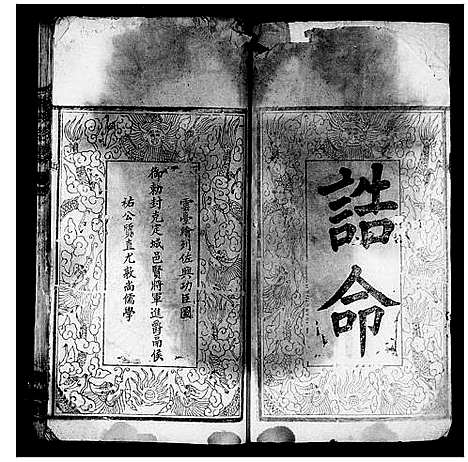 誥命
雲臺繪列佐興功臣圖
御勅封克定城邑賢將軍進爵南侯
祐公質直尤敦尚儒學